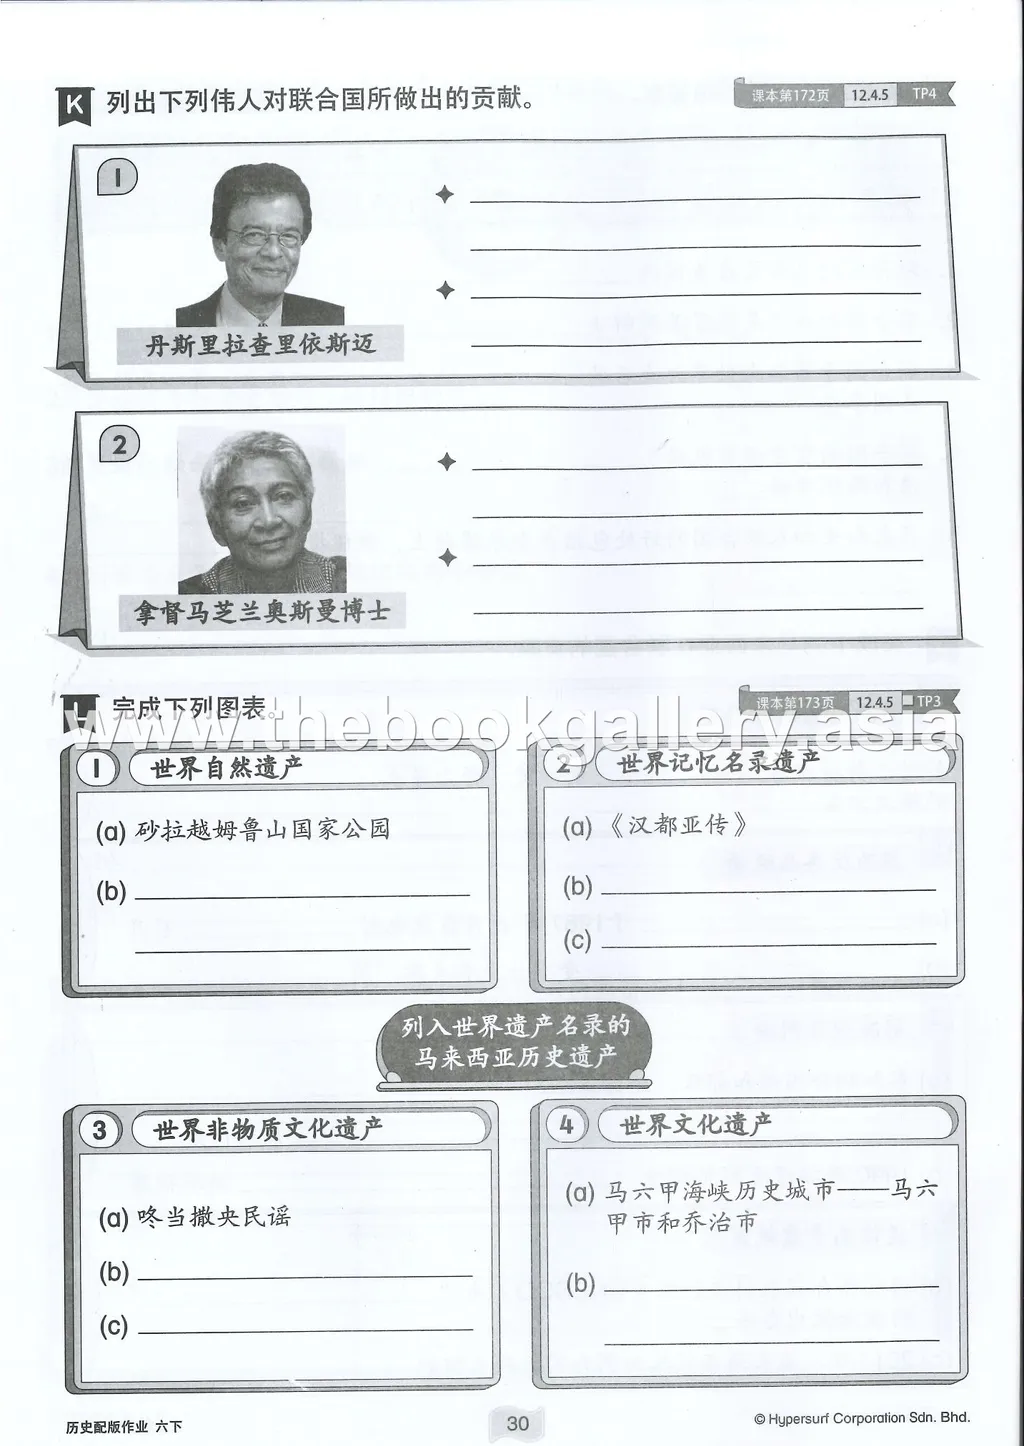 K 列出下列伟人对联合国所做出的贡献。
课本第172页 12.4.5 TP4
1
丹斯里拉查里依斯迈
2
拿督马芝兰奥斯曼博士
L 完成下列图表。
课本第173页 12.4.5 TP3
www.thebookgallery.asia
1 世界自然遗产
(a) 砂拉越姆鲁山国家公园
(b)
2 世界记忆名录遗产
(a) 《汉都亚传》
(b)
(c)
列入世界遗产名录的
马来西亚历史遗产
3 世界非物质文化遗产
(a) 咚当撒央民谣
(b)
(c)
4 世界文化遗产
(a) 马六甲海峡历史城市——马六
甲市和乔治市
(b)
历史配版作业 六下
30
© Hypersurf Corporation Sdn. Bhd.